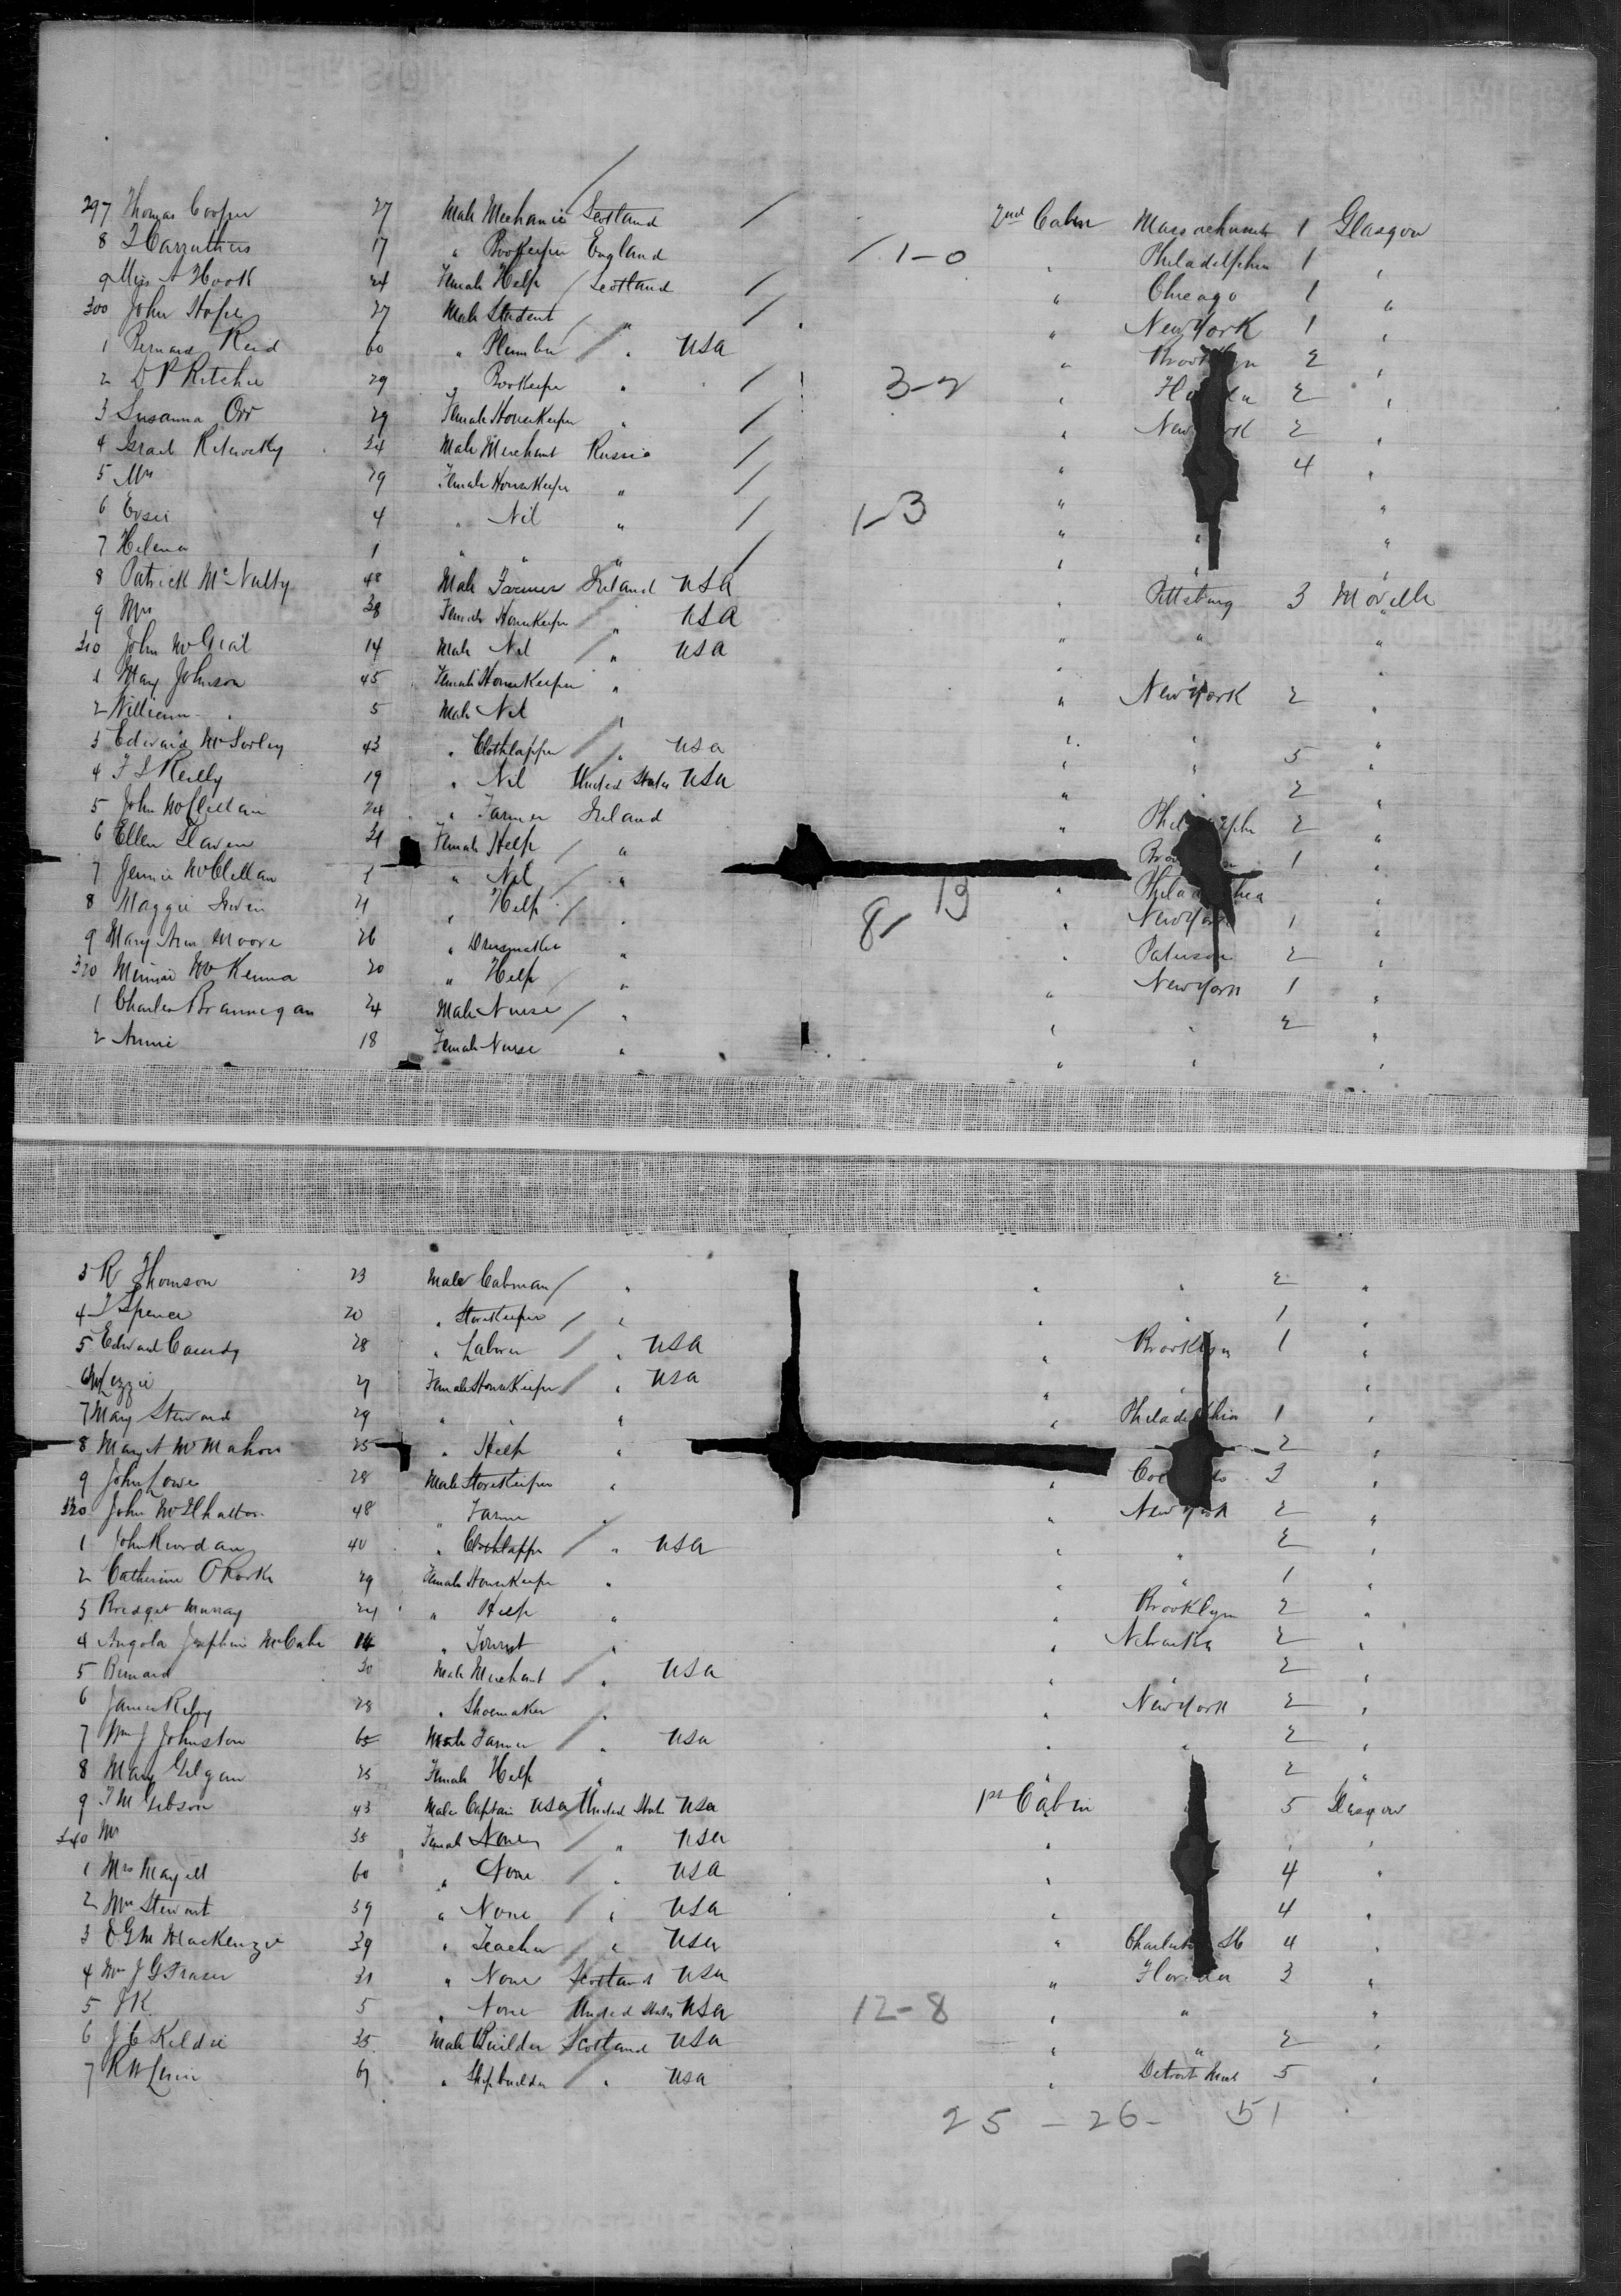 297 Thomas Cooper 27 Male Mechanic Scotland / 2nd Cabin Massachusetts 1 Glasgow
8 J Carruthers 17 " Bookeeper England / 1-0 " Philadelphia 1 "
9 Miss A Hook 24 Female Help / Scotland / " Chicago 1 "
300 John Hope 27 Male Student / " / " New York 1 "
1 Bernard Reid 60 " Plumber / " USA " Brooklyn 2 "
2 D P Ritchie 29 " Bookeeper " / 3-2 " 2 "
3 Susanna Orr 29 Female HouseKeeper " / " New York 2 "
4 Israel 34 Male Merchant Russia / " 4 "
5 Mrs 29 Female HouseKeeper " / " "
6 4 " Nil " / 1-3 " " "
7 Helena 1 " " " / " " "
8 Patrick McNulty 48 Male Farmer Ireland USA " Pittsburg 3 Moville
9 Mrs 38 Female HouseKeeper / " USA " " "
310 John 14 Male Nil / " USA " "
1 Mary Johnson 45 Female HouseKeeper " " New York 2 "
2 William " 5 Male Nil " " " "
3 Edward McSorley 43 " Clothlapper / " USA " " 5 "
4 F S Reilly 19 " Nil United States USA " " 2 "
5 John McClellan 24 " Farmer Ireland " 2 "
6 Ellen Slaven Female Help / " 1 "
7 Jennie McClellan 1 " Nil / " " Philadelphia "
8 Maggie Irwin 21 " Help / " 8-13 " New York 1 "
9 Mary Ann Moore 26 " Dressmaker " " Paterson 2 "
320 Minnie McKenna 20 " Help / " " New York 1 "
1 Charles Brannegan 24 Male Nurse / " " " 2 "
2 Annie 18 Female Nurse " " " "
3 R Thomson 23 Male Cabman / " " " 2 "
4 J Spence 20 " StoreKeeper / " " " 1 "
5 Edward 28 " Laborer / " USA " Brooklyn 1 "
6 Lizzie 27 Female HouseKeeper / " USA " " "
7 Mary Steward 29 " " " " Philadelphia 1 "
8 Mary A McMahon 25 " Help " 2 "
9 John Lowe 28 Male StoreKeeper " " 3 "
John 48 " Farmer " " New York 2 "
1 John Riordan 40 " Clothlapper / " USA " " 2 "
2 Catherine ORorke 29 Female HouseKeeper " " " 1 "
3 Bridget Murray 24 " Help " " Brooklyn 2 "
4 Angola Josephine McCabe 14 " Tourist " " Nebraska 2 "
5 Bernard 30 Male Merchant / " USA " " 2 "
6 James Reilly 28 " Shoemaker " " New York 2 "
7 Wm J Johnston 65 Male Farmer / " USA " " 2 "
8 Mary Gilgan 25 Female Help " " 2 "
9 J M Gibson 43 Male Captain USA United States USA 1st Cabin 5 Glasgow
340 Mrs 35 Female None / " USA " " "
1 Mrs Mayell 60 " None / " USA " 4 "
2 Mrs Stewart 39 " None / " USA " 4 "
3 MacKenzie 39 " Teacher / " USA " Charleston SC 4 "
4 Mrs J G Fraser 31 " None Scotland USA " Florida 3 "
5 J K 5 " None United States USA 12-8 " " "
6 J C Kildie 35 Male Builder Scotland USA " " 2 "
7 R W " Shipbuilder / " USA " Detroit Mich 5 "
25 - 26 - 51